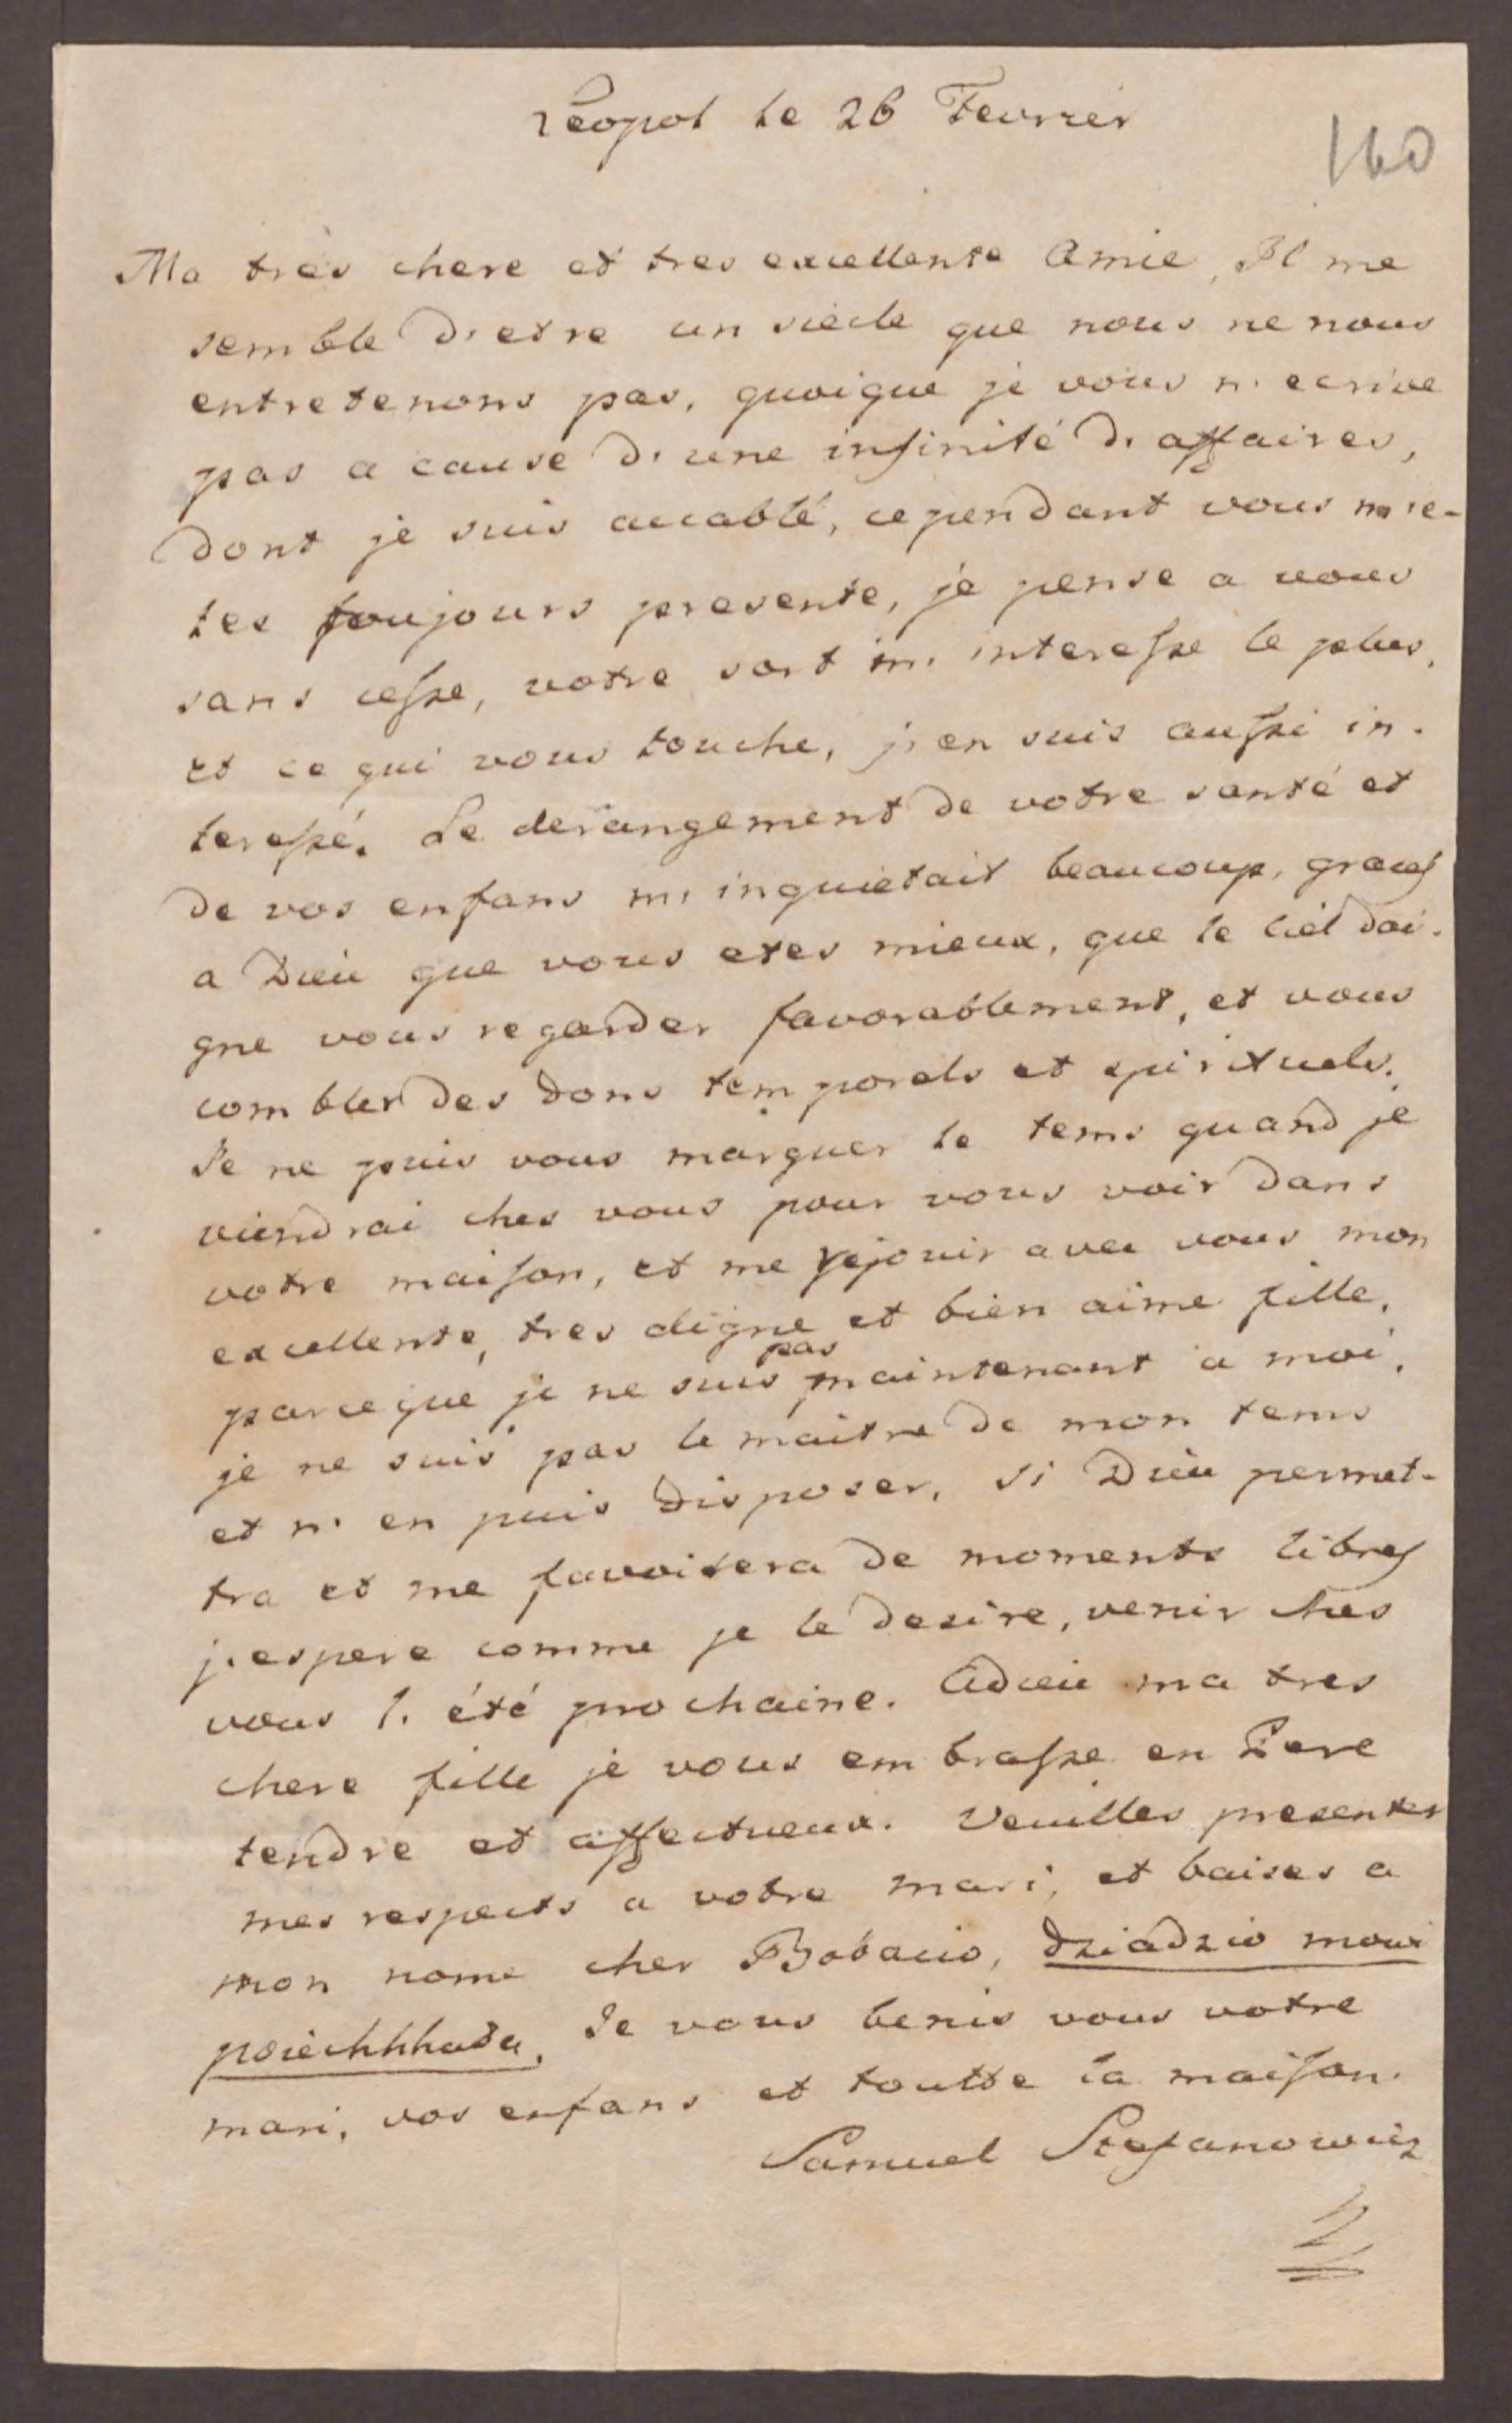 Léopol le 26 Fevrier
160
Ma très chere et tres excellente Amie, Il me
semble d'etre un siecle que nous ne nous
entretenons pas, quoique je vous n'ecrive
pas a cause d'une infinité d'affaires,
dont je suis accablé, cependant vous m'e-
tes toujours presente, je pense a vous
sans cesse, votre sort m'interesse le plus,
et ce qui vous touche, j'en suis aussi in-
teressé. Le derangement de votre santé et
de vos enfans m'inquietait beaucoup, graces
a Dieu que vous etes mieux, que le ciel dai-
gne vous regarder favorablement, et vous
combler des dons temporels et spirituels.
Je ne puis vous marquer le tems quand je
viendrai ches vous pour vous voir dans
votre maison, et me rejouir avec vous mon
excellente, tres digne et bien aime fille,
parceque je ne suis pas maintenant a moi,
je ne suis pas le maitre de mon tems
et n'en puis disposer, si Dieu permet-
tra et me favoisera de moments libres
j'espere comme je le desire, venir ches
vous l'été prochaine. Adieu ma tres
chere fille je vous embrasse en Pere
tendre et affectueux. Veuilles presenter
mes respects a votre mari, et baises a
mon nome cher Bobacio, dziadzio mowi
poiechhhada. Je vous benis vous votre
mari, vos enfans et toutte la maison.
Samuel Stefanowicz